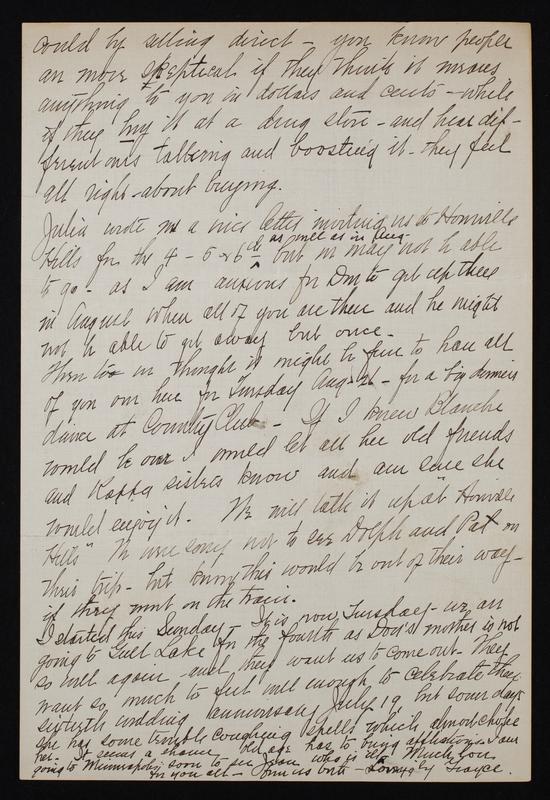 could by selling direct - you know people
are more skeptical if they think it means
anything to you in dollars and cents - while
if they buy it at a drug store - and hear dif-
ferent ones talking and boosting it - they feel
all right - about buying.
Julia wrote me a nice letter inviting us to
Hills for the 4 - 5 & 6th as well as in Aug - but we may not be able
to go - as I am anxious for Don to get up there
in August when all of you are there and he might
not be able to get away but once -
Then too we thought it might be fun to have all
of you over here for Tuesday Aug - 26 - for a big dinner
dance at Country Club - If I knew Blanche
would be over I would let all her old friends
and Kappa sisters know and am sure she
would enjoy it. We will talk it up at
Hills" We were sorry not to see Dolph and Pat on
this trip - but know this would be out of their way -
if they went on the train.
I started this Sunday - It is now Tuesday - we are
going to Gull Lake for the fourth as Don's mother is not
so well again - and they want us to come out - They
want so much to feel well enough to celebrate their
sixtieth wedding anniversary July 19 but some days
she has some terrible coughing spells which almost choke
her - It seems a shame - old age has to bring afflictions. I am
going to Minneapolis soon to see Jean who is ill - Much love
for you all - from us both - Lovingly